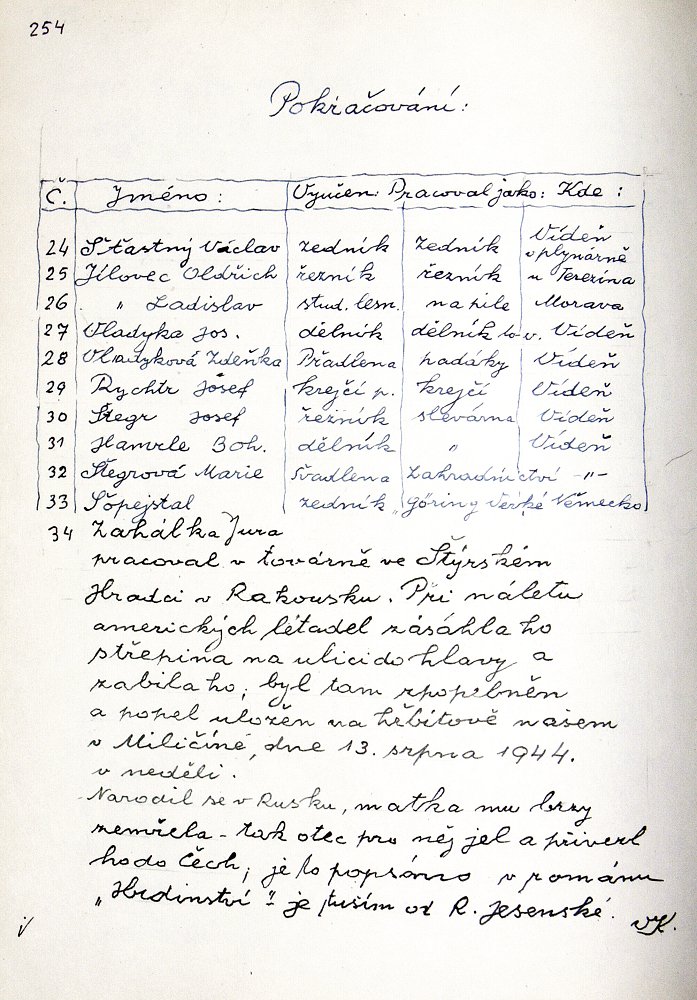 254
Pokračování:
Č. Jméno: Vyučen: Pracoval jako: Kde:
24 Šťastný Václav zedník zedník Vídeň v plynárně
25 Jílovec Oldřich řezník řezník u Terezína
26 " Ladislav stud. lesn. na pile Morava
27 Vladyka Jos. dělník dělník to v. Vídeň
28 Vladyková Zdeňka Přadlena padáky Vídeň
29 Rychtr Josef krejčí p. krejčí Vídeň
30 Štegr Josef řezník slevárna Vídeň
31 Hamrle Boh. dělník " Vídeň
32 Štegrová Marie Švadlena Zahradnictví -"-
33 Šopejstal zedník "göring Verké Německo
34 Zahálka Jura
pracoval v továrně ve Štýrském
Hradci v Rakousku. Při náletu
amerických létadel zásáhla ho
střepina na ulici do hlavy a
zabila ho, byl tam zpopelněn
a popel uložen na hřbitově našem
v Miličíně, dne 13. srpna 1944.
v neděli.
Narodil se v Rusku, matka mu brzy
zemřela - tak otec pro něj jel a přivezl
ho do Čech, je to popsáno v románu
"Hrdinství" - je tuším od R. Jesenské.
VK.